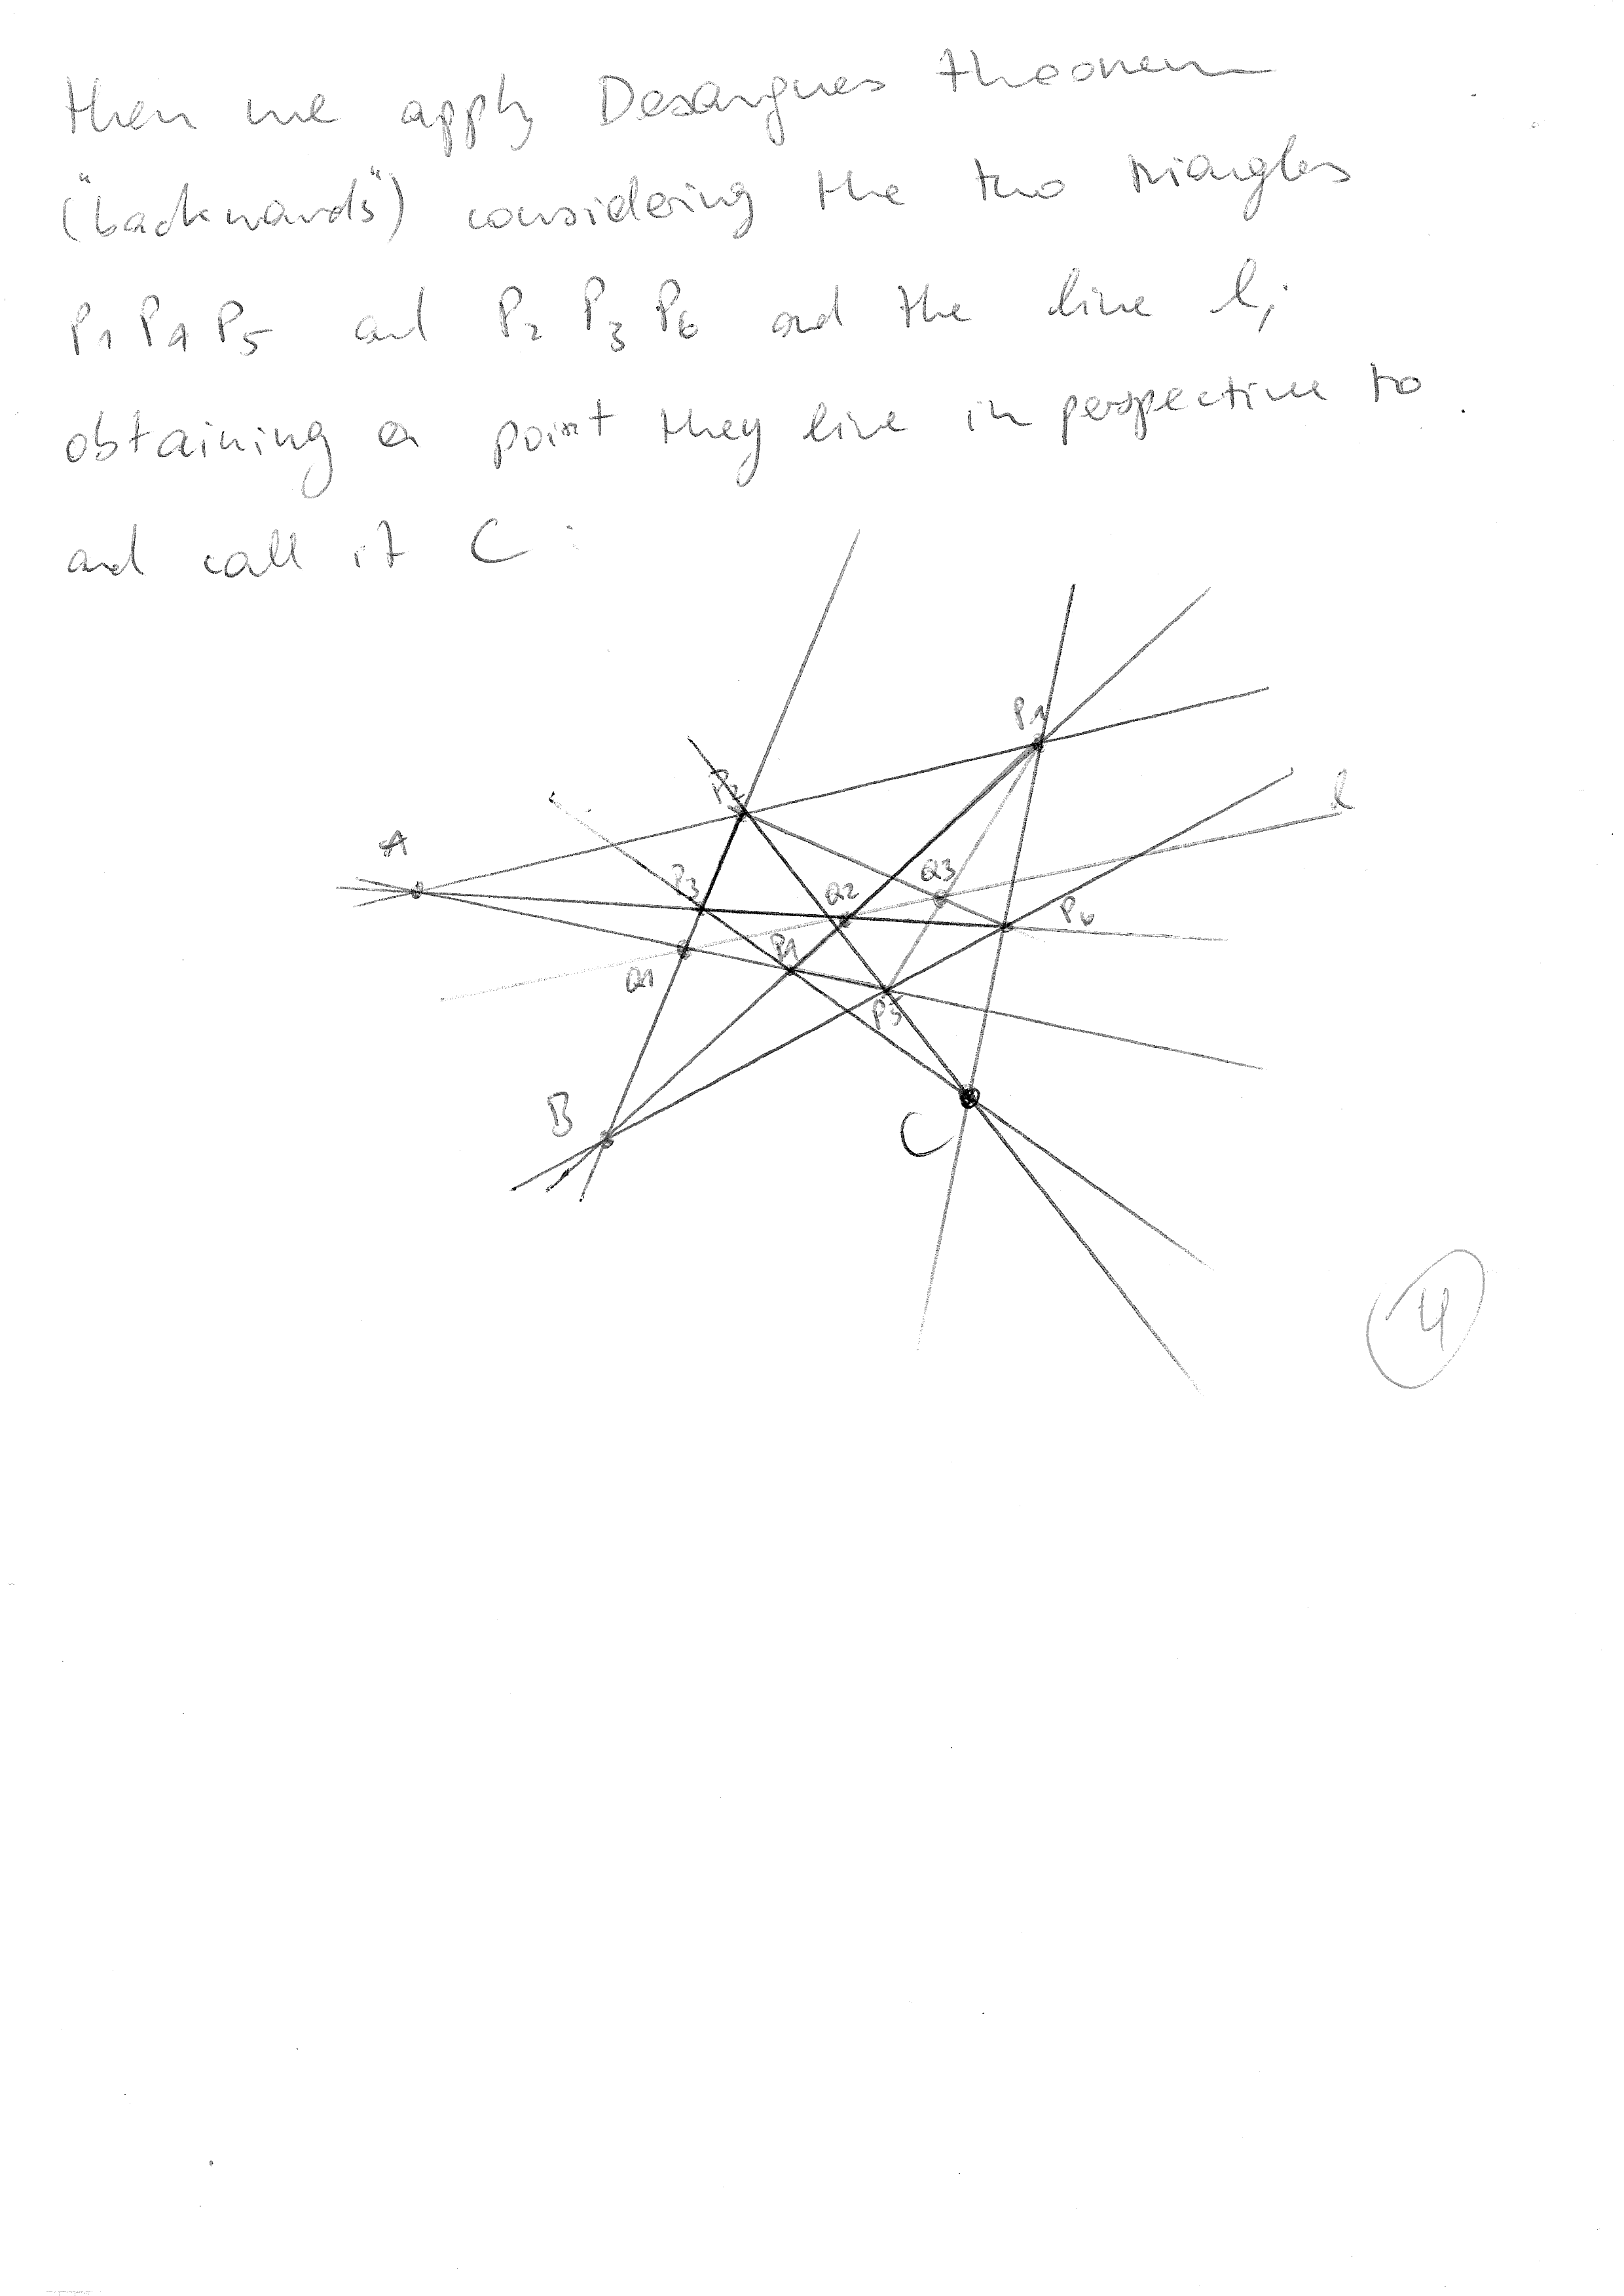 then we apply Desargues theorem
("backwards") considering the two triangles
P1 P4 P5 and P2 P3 P6 and the line l,
obtaining a point they live in perspective to
and call it C:
P1
P2
l
A
P3
Q2
Q3
P6
P4
Q1
P5
B
C
4